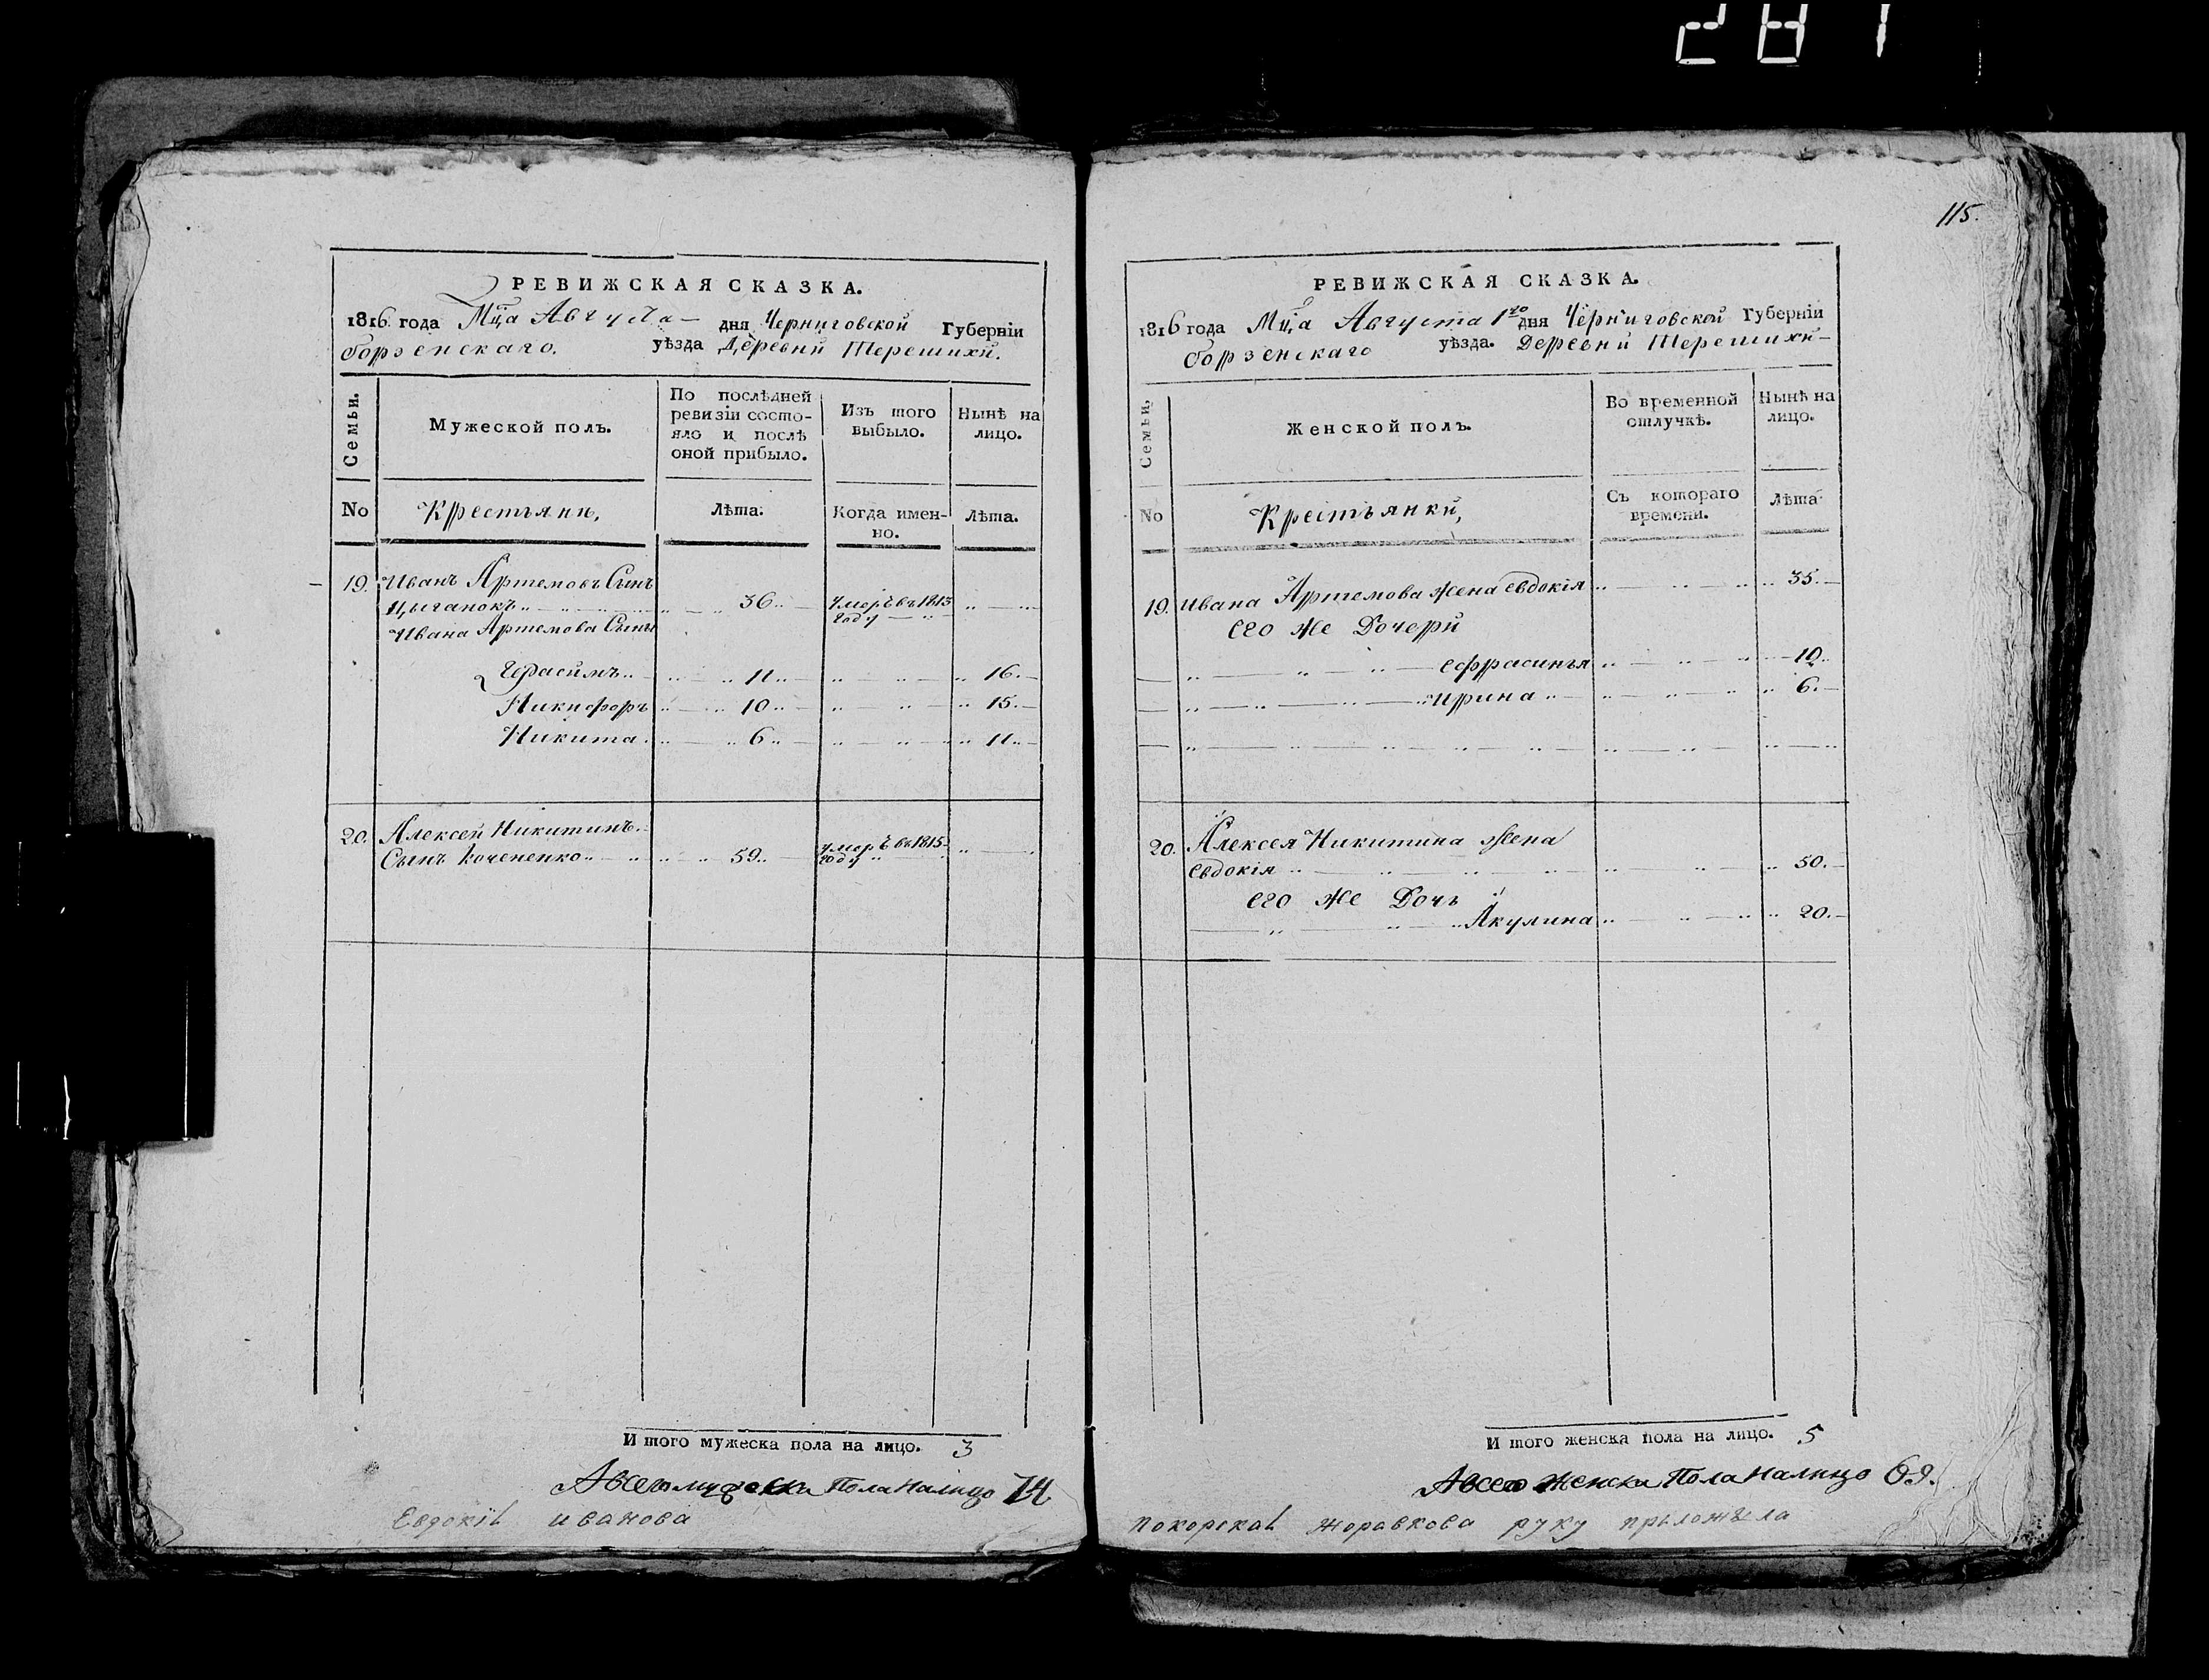 281
РЕВИЖСКАЯ СКАЗКА.
1816 года Мца Августа — дня Черниговской Губерніи
борзенскаго. уѣзда Деревни Терешихи.
Семьи.
Мужеской полъ.
По послѣдней ревизіи состо-
яло и послѣ оной прибыло.
Изъ того выбыло.
Нынѣ на лицо.
No
Крестьяни,
Лѣта.
Когда имен-
но.
Лѣта.
19. Иванъ Артемовъ Сынъ
Цыганокъ 36 умеръ въ 1813
году
Ивана Артемова Сыны
Герасимъ 11 16.
Никифоръ 10 15.
Никита 6 11
20. Алексей Никитинъ
Сынъ Коченко 59 умеръ въ 1815
году
И того мужеска пола на лицо. 3
А всего мужеска Пола На лицо 74
Евдокіѣ иванова
115.
РЕВИЖСКАЯ СКАЗКА.
1816 года Мца Августа 1го дня Черниговской Губерніи
борзенскаго уѣзда. Деревни Терешихи
Семьи,
Женской полъ.
Во временной отлучкѣ.
Нынѣ на лицо.
No
Крестьянки,
Съ котораго времени.
Лѣта
19. Ивана Артемова жена Евдокія 35.
его же Дочери
Ефрасинья 10
Ирина 6.
20. Алексея Никитина жена
Евдокія 50.
его же Дочь
Акулина 20.
И того женска пола на лицо. 5
А всего женска Пола На лицо 69.
Жоравкова руку